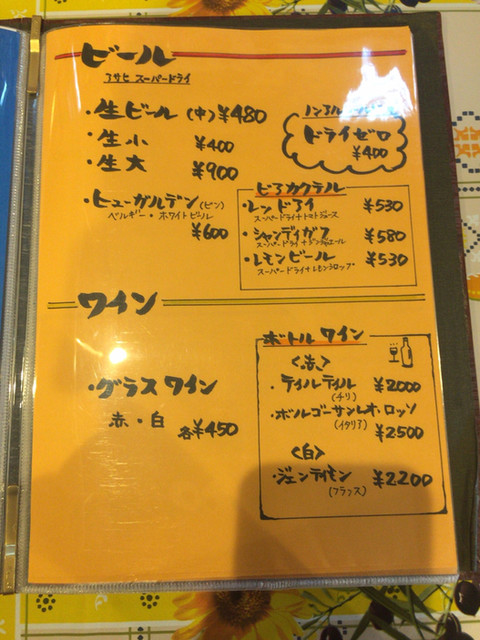 ビール
アサヒ スーパードライ
・生ビール (中) ¥480
・生 小 ¥400
・生 大 ¥900
ノンアル
ドライゼロ
¥400
・ヒューガルデン (ビン)
ベルギー・ホワイトビール
¥600
ビアカクテル
・レッドアイ ¥530
スーパードライ+トマトジュース
・シャンディガフ ¥580
スーパードライ+ジンジャエール
・レモンビール ¥530
スーパードライ+レモンシロップ
ワイン
・グラスワイン
赤・白 各¥450
ボトルワイン
〈赤〉
・ティルティル ¥2000
(チリ)
・ボルゴーサンレオ・ロッソ
(イタリア)
¥2500
〈白〉
・ジェンティモン ¥2200
(フランス)